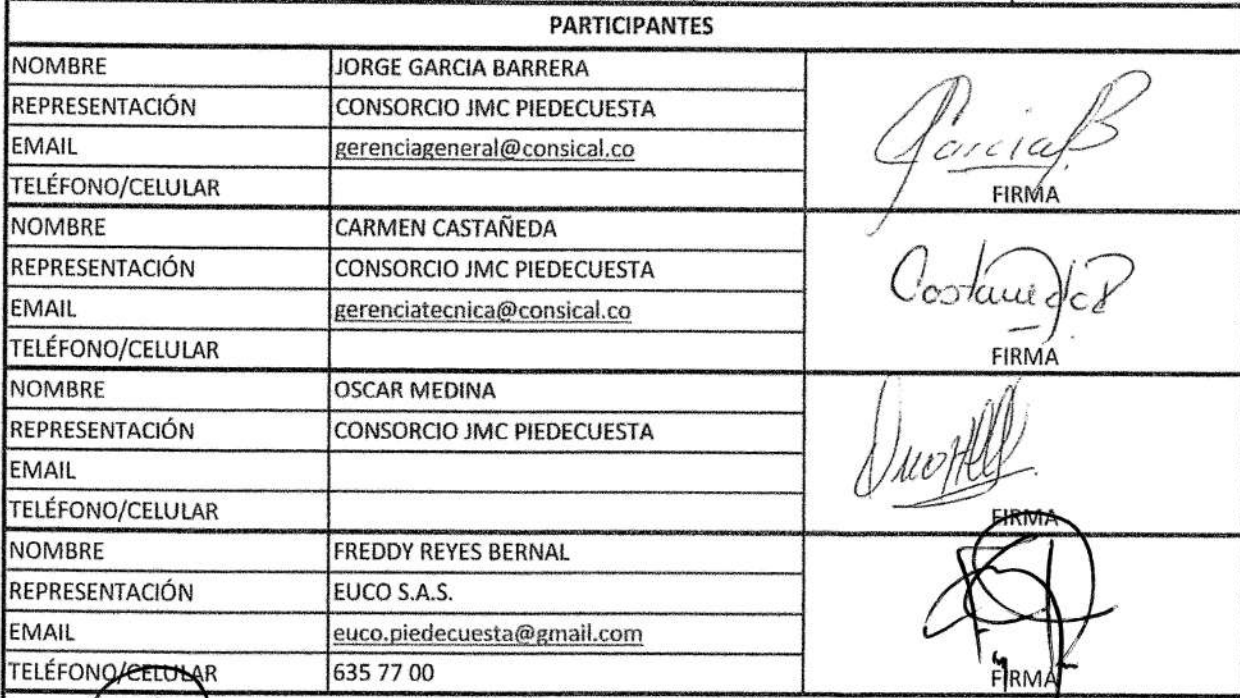 PARTICIPANTES
NOMBRE JORGE GARCIA BARRERA
REPRESENTACIÓN CONSORCIO JMC PIEDECUESTA
EMAIL gerenciageneral@consical.co
TELÉFONO/CELULAR
GarciaB
FIRMA
NOMBRE CARMEN CASTAÑEDA
REPRESENTACIÓN CONSORCIO JMC PIEDECUESTA
EMAIL gerenciatecnica@consical.co
TELÉFONO/CELULAR
FIRMA
NOMBRE OSCAR MEDINA
REPRESENTACIÓN CONSORCIO JMC PIEDECUESTA
EMAIL
TELÉFONO/CELULAR
FIRMA
NOMBRE FREDDY REYES BERNAL
REPRESENTACIÓN EUCO S.A.S.
EMAIL euco.piedecuesta@gmail.com
TELÉFONO/CELULAR 635 77 00
FIRMA